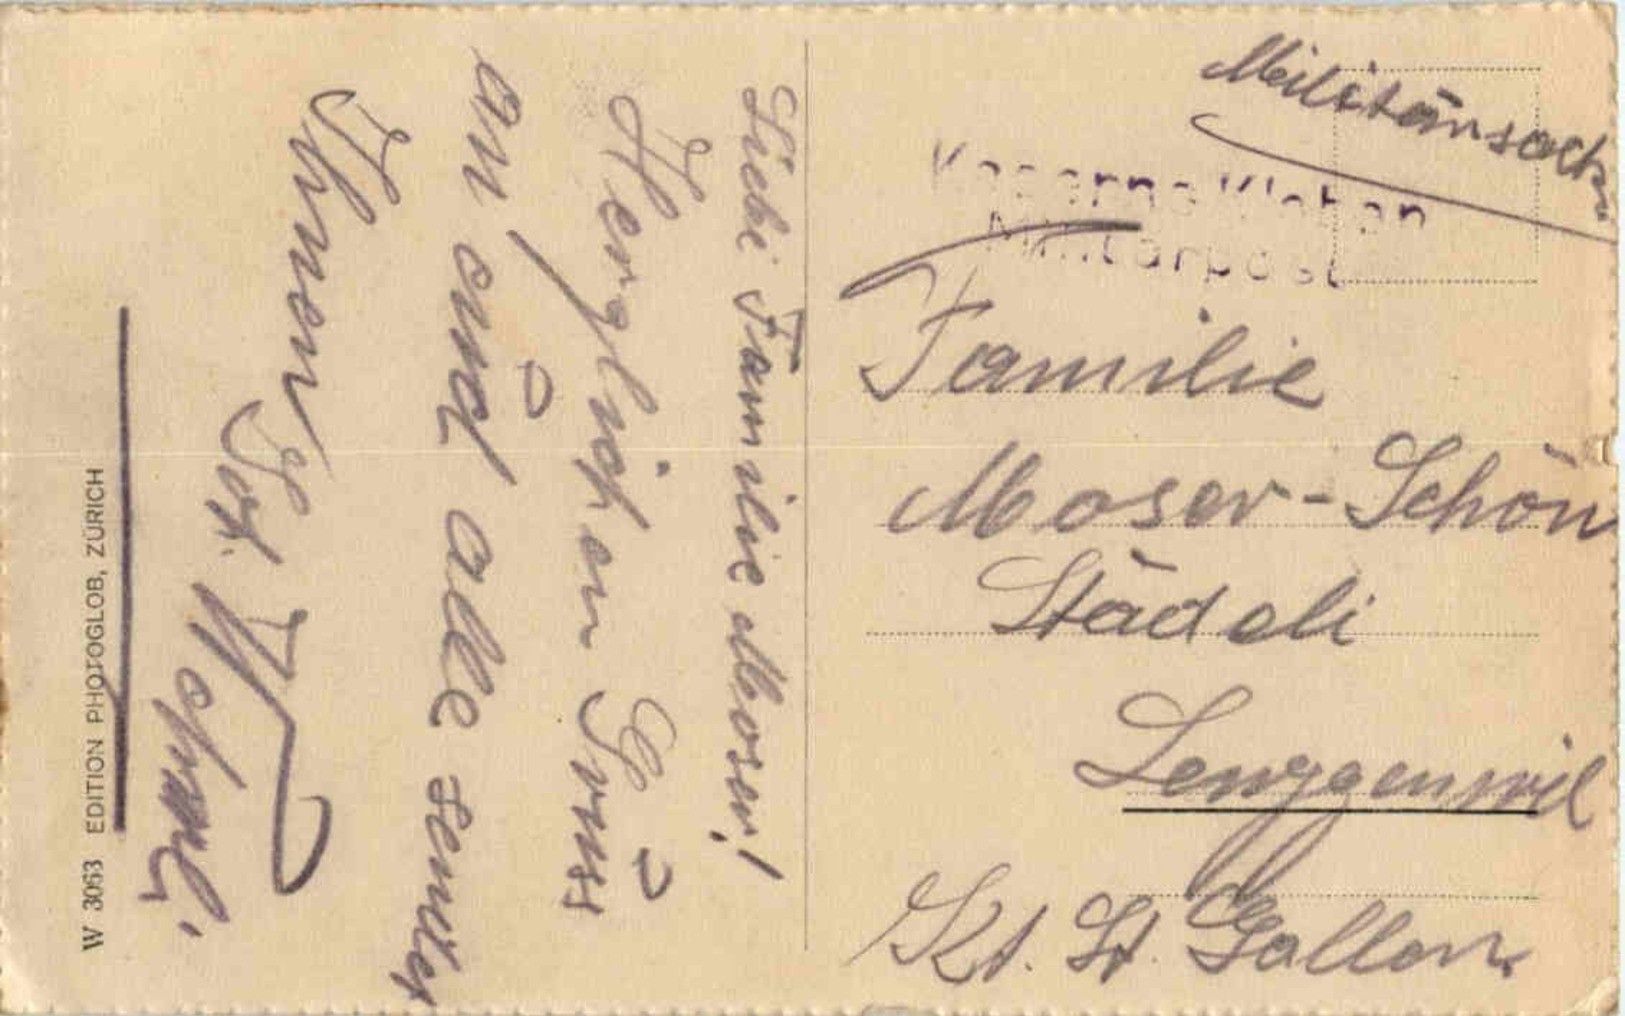 Militärsache
Kaserne Kloten
Militärpost
Familie
Moser-Schön
Städeli
Lenggenwil
Kt. St. Gallen.
Liebe Familie Moser!
Herzlichen Gruss
an euch alle sendet
Ihnen
W 3063 EDITION PHOTOGLOB, ZÜRICH